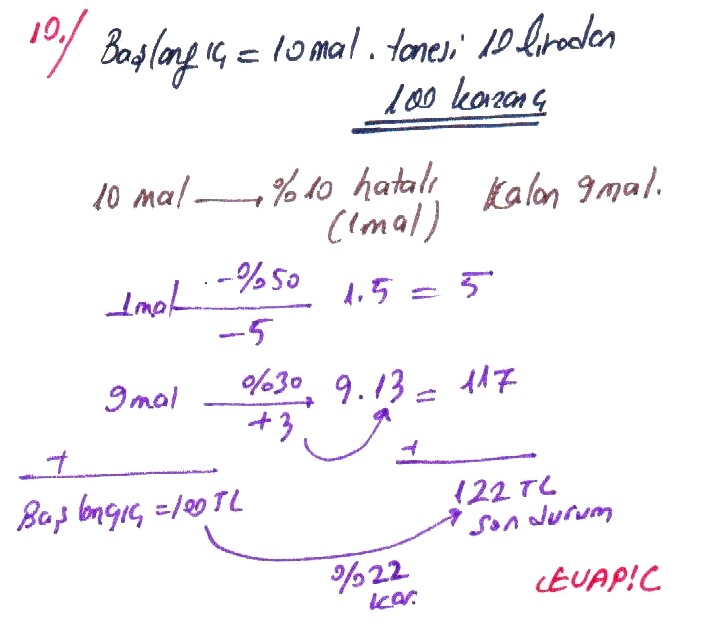 10./ Başlangıç = 10 mal. tanesi 10 liradan
100 kazanç
10 mal → %10 hatalı Kalan 9 mal.
(1 mal)
1 mal -%50 1.5 = 5
-5
9 mal %30 9.13 = 117
+3
+ +
Başlangıç = 100 TL 122 TL
son durum
%22
kar.
CEVAP!C